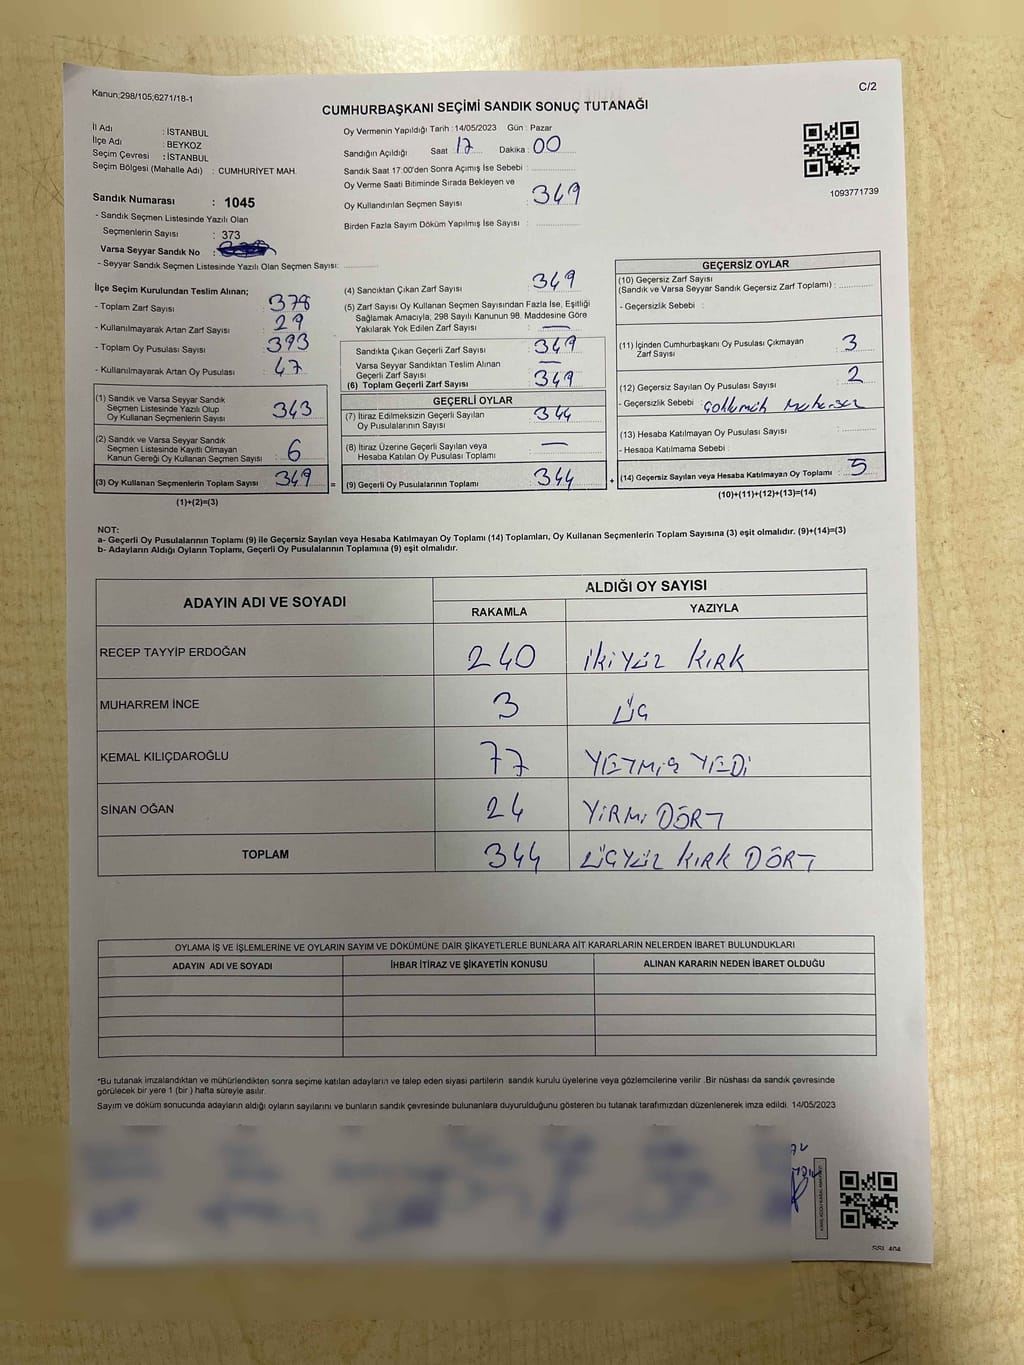 Kanun;298/105,6271/18-1
C/2
CUMHURBAŞKANI SEÇİMİ SANDIK SONUÇ TUTANAĞI
İl Adı : İSTANBUL
İlçe Adı : BEYKOZ
Seçim Çevresi : İSTANBUL
Seçim Bölgesi (Mahalle Adı) : CUMHURİYET MAH.
Sandık Numarası : 1045
- Sandık Seçmen Listesinde Yazılı Olan
Seçmenlerin Sayısı : 373
Varsa Seyyar Sandık No :
- Seyyar Sandık Seçmen Listesinde Yazılı Olan Seçmen Sayısı:
Oy Vermenin Yapıldığı Tarih : 14/05/2023 Gün : Pazar
Sandığın Açıldığı Saat : 17 Dakika : 00
Sandık Saat 17:00'den Sonra Açımış İse Sebebi :
Oy Verme Saati Bitiminde Sırada Bekleyen ve
Oy Kullandırılan Seçmen Sayısı : 349
Birden Fazla Sayım Döküm Yapılmış İse Sayısı :
1093771739
İlçe Seçim Kurulundan Teslim Alınan;
- Toplam Zarf Sayısı : 378
- Kullanılmayarak Artan Zarf Sayısı : 29
- Toplam Oy Pusulası Sayısı : 393
- Kullanılmayarak Artan Oy Pusulası : 47
(1) Sandık ve Varsa Seyyar Sandık
Seçmen Listesinde Yazılı Olup
Oy Kullanan Seçmenlerin Sayısı : 343
(2) Sandık ve Varsa Seyyar Sandık
Seçmen Listesinde Kayıtlı Olmayan
Kanun Gereği Oy Kullanan Seçmen Sayısı : 6
(3) Oy Kullanan Seçmenlerin Toplam Sayısı : 349
(1)+(2)=(3)
(4) Sandıktan Çıkan Zarf Sayısı : 349
(5) Zarf Sayısı Oy Kullanan Seçmen Sayısından Fazla İse, Eşitliği
Sağlamak Amacıyla; 298 Sayılı Kanunun 98. Maddesine Göre
Yakılarak Yok Edilen Zarf Sayısı : —
Sandıkta Çıkan Geçerli Zarf Sayısı : 349
Varsa Seyyar Sandıktan Teslim Alınan
Geçerli Zarf Sayısı : —
(6) Toplam Geçerli Zarf Sayısı : 349
GEÇERLİ OYLAR
(7) İtiraz Edilmeksizin Geçerli Sayılan
Oy Pusulalarının Sayısı : 344
(8) İtiraz Üzerine Geçerli Sayılan veya
Hesaba Katılan Oy Pusulası Toplamı : —
= (9) Geçerli Oy Pusulalarının Toplamı : 344
GEÇERSİZ OYLAR
(10) Geçersiz Zarf Sayısı
(Sandık ve Varsa Seyyar Sandık Geçersiz Zarf Toplamı) :
- Geçersizlik Sebebi :
(11) İçinden Cumhurbaşkanı Oy Pusulası Çıkmayan
Zarf Sayısı : 3
(12) Geçersiz Sayılan Oy Pusulası Sayısı : 2
- Geçersizlik Sebebi :
(13) Hesaba Katılmayan Oy Pusulası Sayısı :
- Hesaba Katılmama Sebebi :
+ (14) Geçersiz Sayılan veya Hesaba Katılmayan Oy Toplamı : 5
(10)+(11)+(12)+(13)=(14)
NOT:
a- Geçerli Oy Pusulalarının Toplamı (9) ile Geçersiz Sayılan veya Hesaba Katılmayan Oy Toplamı (14) Toplamları, Oy Kullanan Seçmenlerin Toplam Sayısına (3) eşit olmalıdır. (9)+(14)=(3)
b- Adayların Aldığı Oyların Toplamı, Geçerli Oy Pusulalarının Toplamına (9) eşit olmalıdır.
ADAYIN ADI VE SOYADI
ALDIĞI OY SAYISI
RAKAMLA YAZIYLA
RECEP TAYYİP ERDOĞAN 240 İKİYÜZ KIRK
MUHARREM İNCE 3 ÜÇ
KEMAL KILIÇDAROĞLU 77 YETMİŞ YEDİ
SİNAN OĞAN 24 YİRMİ DÖRT
TOPLAM 344 ÜÇYÜZ KIRK DÖRT
OYLAMA İŞ VE İŞLEMLERİNE VE OYLARIN SAYIM VE DÖKÜMÜNE DAİR ŞİKAYETLERLE BUNLARA AİT KARARLARIN NELERDEN İBARET BULUNDUKLARI
ADAYIN ADI VE SOYADI İHBAR İTİRAZ VE ŞİKAYETİN KONUSU ALINAN KARARIN NEDEN İBARET OLDUĞU
*Bu tutanak imzalandıktan ve mühürlendikten sonra seçime katılan adayların ve talep eden siyasi partilerin sandık kurulu üyelerine veya gözlemcilerine verilir .Bir nüshası da sandık çevresinde
görülecek bir yere 1 (bir ) hafta süreyle asılır.
Sayım ve döküm sonucunda adayların aldığı oyların sayılarını ve bunların sandık çevresinde bulunanlara duyurulduğunu gösteren bu tutanak tarafımızdan düzenlenerek imza edildi. 14/05/2023